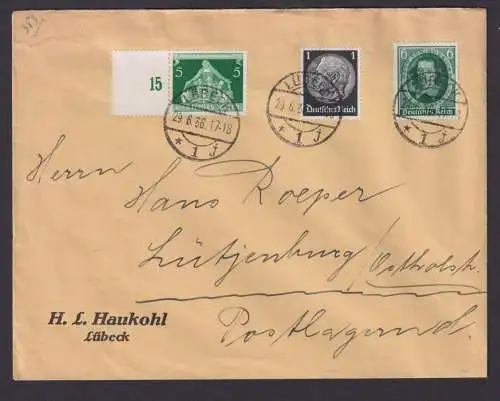 15
5
1
Deutsches Reich
6
6
Deutsches Reich
LÜBECK
29.6.36.17-18
* 1 J
LÜBECK
29.6.3
* 1 J
* 1 J
Herrn
Hans Roeper
Lütjenburg/Ostholst.
Postlagernd.
H. L. Haukohl
Lübeck